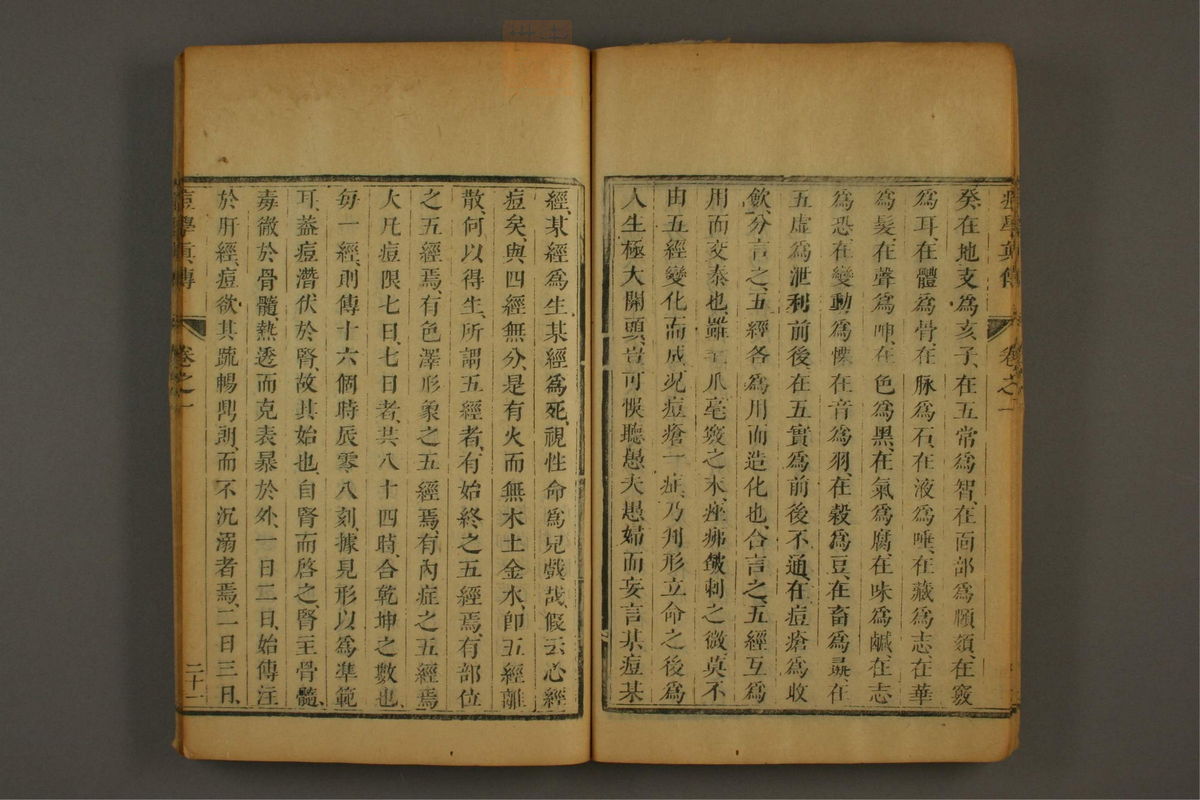 痘學眞傳 卷之一
癸、在地支爲亥子、在五常爲智、在面部爲頤頦、在竅
爲耳、在體爲骨、在脉爲石、在液爲唾、在藏爲志、在華
爲髮、在聲爲呻、在色爲黑、在氣爲腐、在味爲鹹、在志
爲恐、在變動爲慄、在音爲羽、在穀爲豆、在畜爲彘、在
五虛爲泄利前後、在五實爲前後不通、在痘瘡爲收
歛、分言之、五經各爲用而造化也、合言之、五經互爲
用而交泰也、雖毛爪毫竅之末、痤疿皴刺之微、莫不
由五經變化而成、况痘瘡一症、乃判形立命之後、爲
人生極大開頭、豈可悞聽愚夫愚婦而妄言某痘某
經、某經爲生某經爲死、視性命爲兒戲哉、假云心經
痘矣、與四經無分、是有火而無木土金水、卽五經離
散、何以得生、所謂五經者、有始終之五經焉、有部位
之五經焉、有色澤形象之五經焉、有內症之五經焉
大凡痘限七日、七日者、共八十四時、合乾坤之數也、
每一經、則傳十六個時辰零八刻、據見形以爲準範
耳、葢痘潛伏於腎、故其始也、自腎而啓之、腎主骨髓、
毒徹於骨髓、熱透而克表暴於外、一日二日、始傳注
於肝經、痘欲其疏暢鼎剏、而不沉溺者焉、二日三日、
痘學眞傳 卷之一 二十一